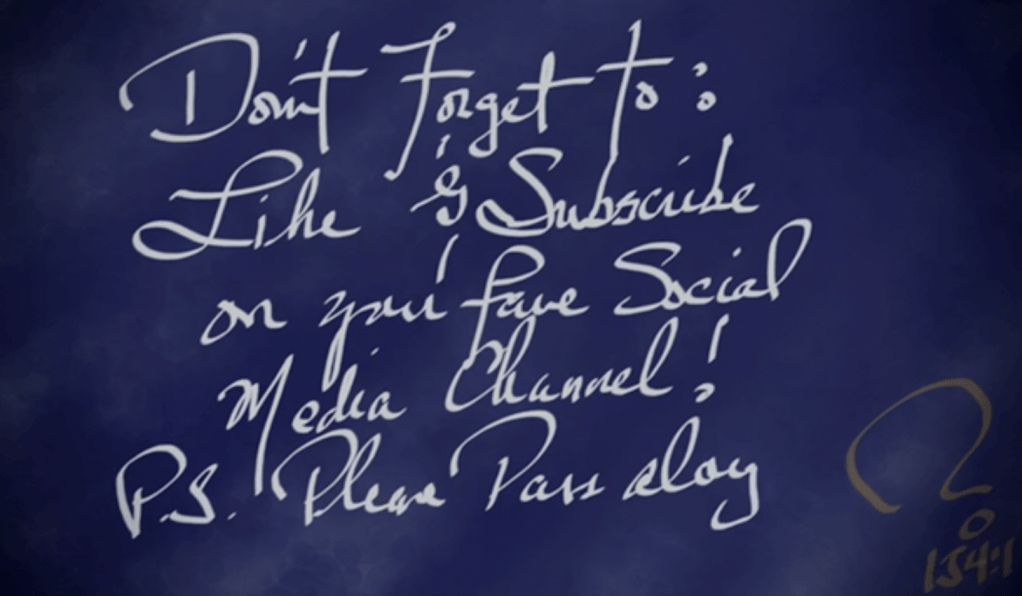 Don't Forget to:
Like & Subscribe
on your fave Social
Media Channel!
P.S. Please Pass along
1J4:1